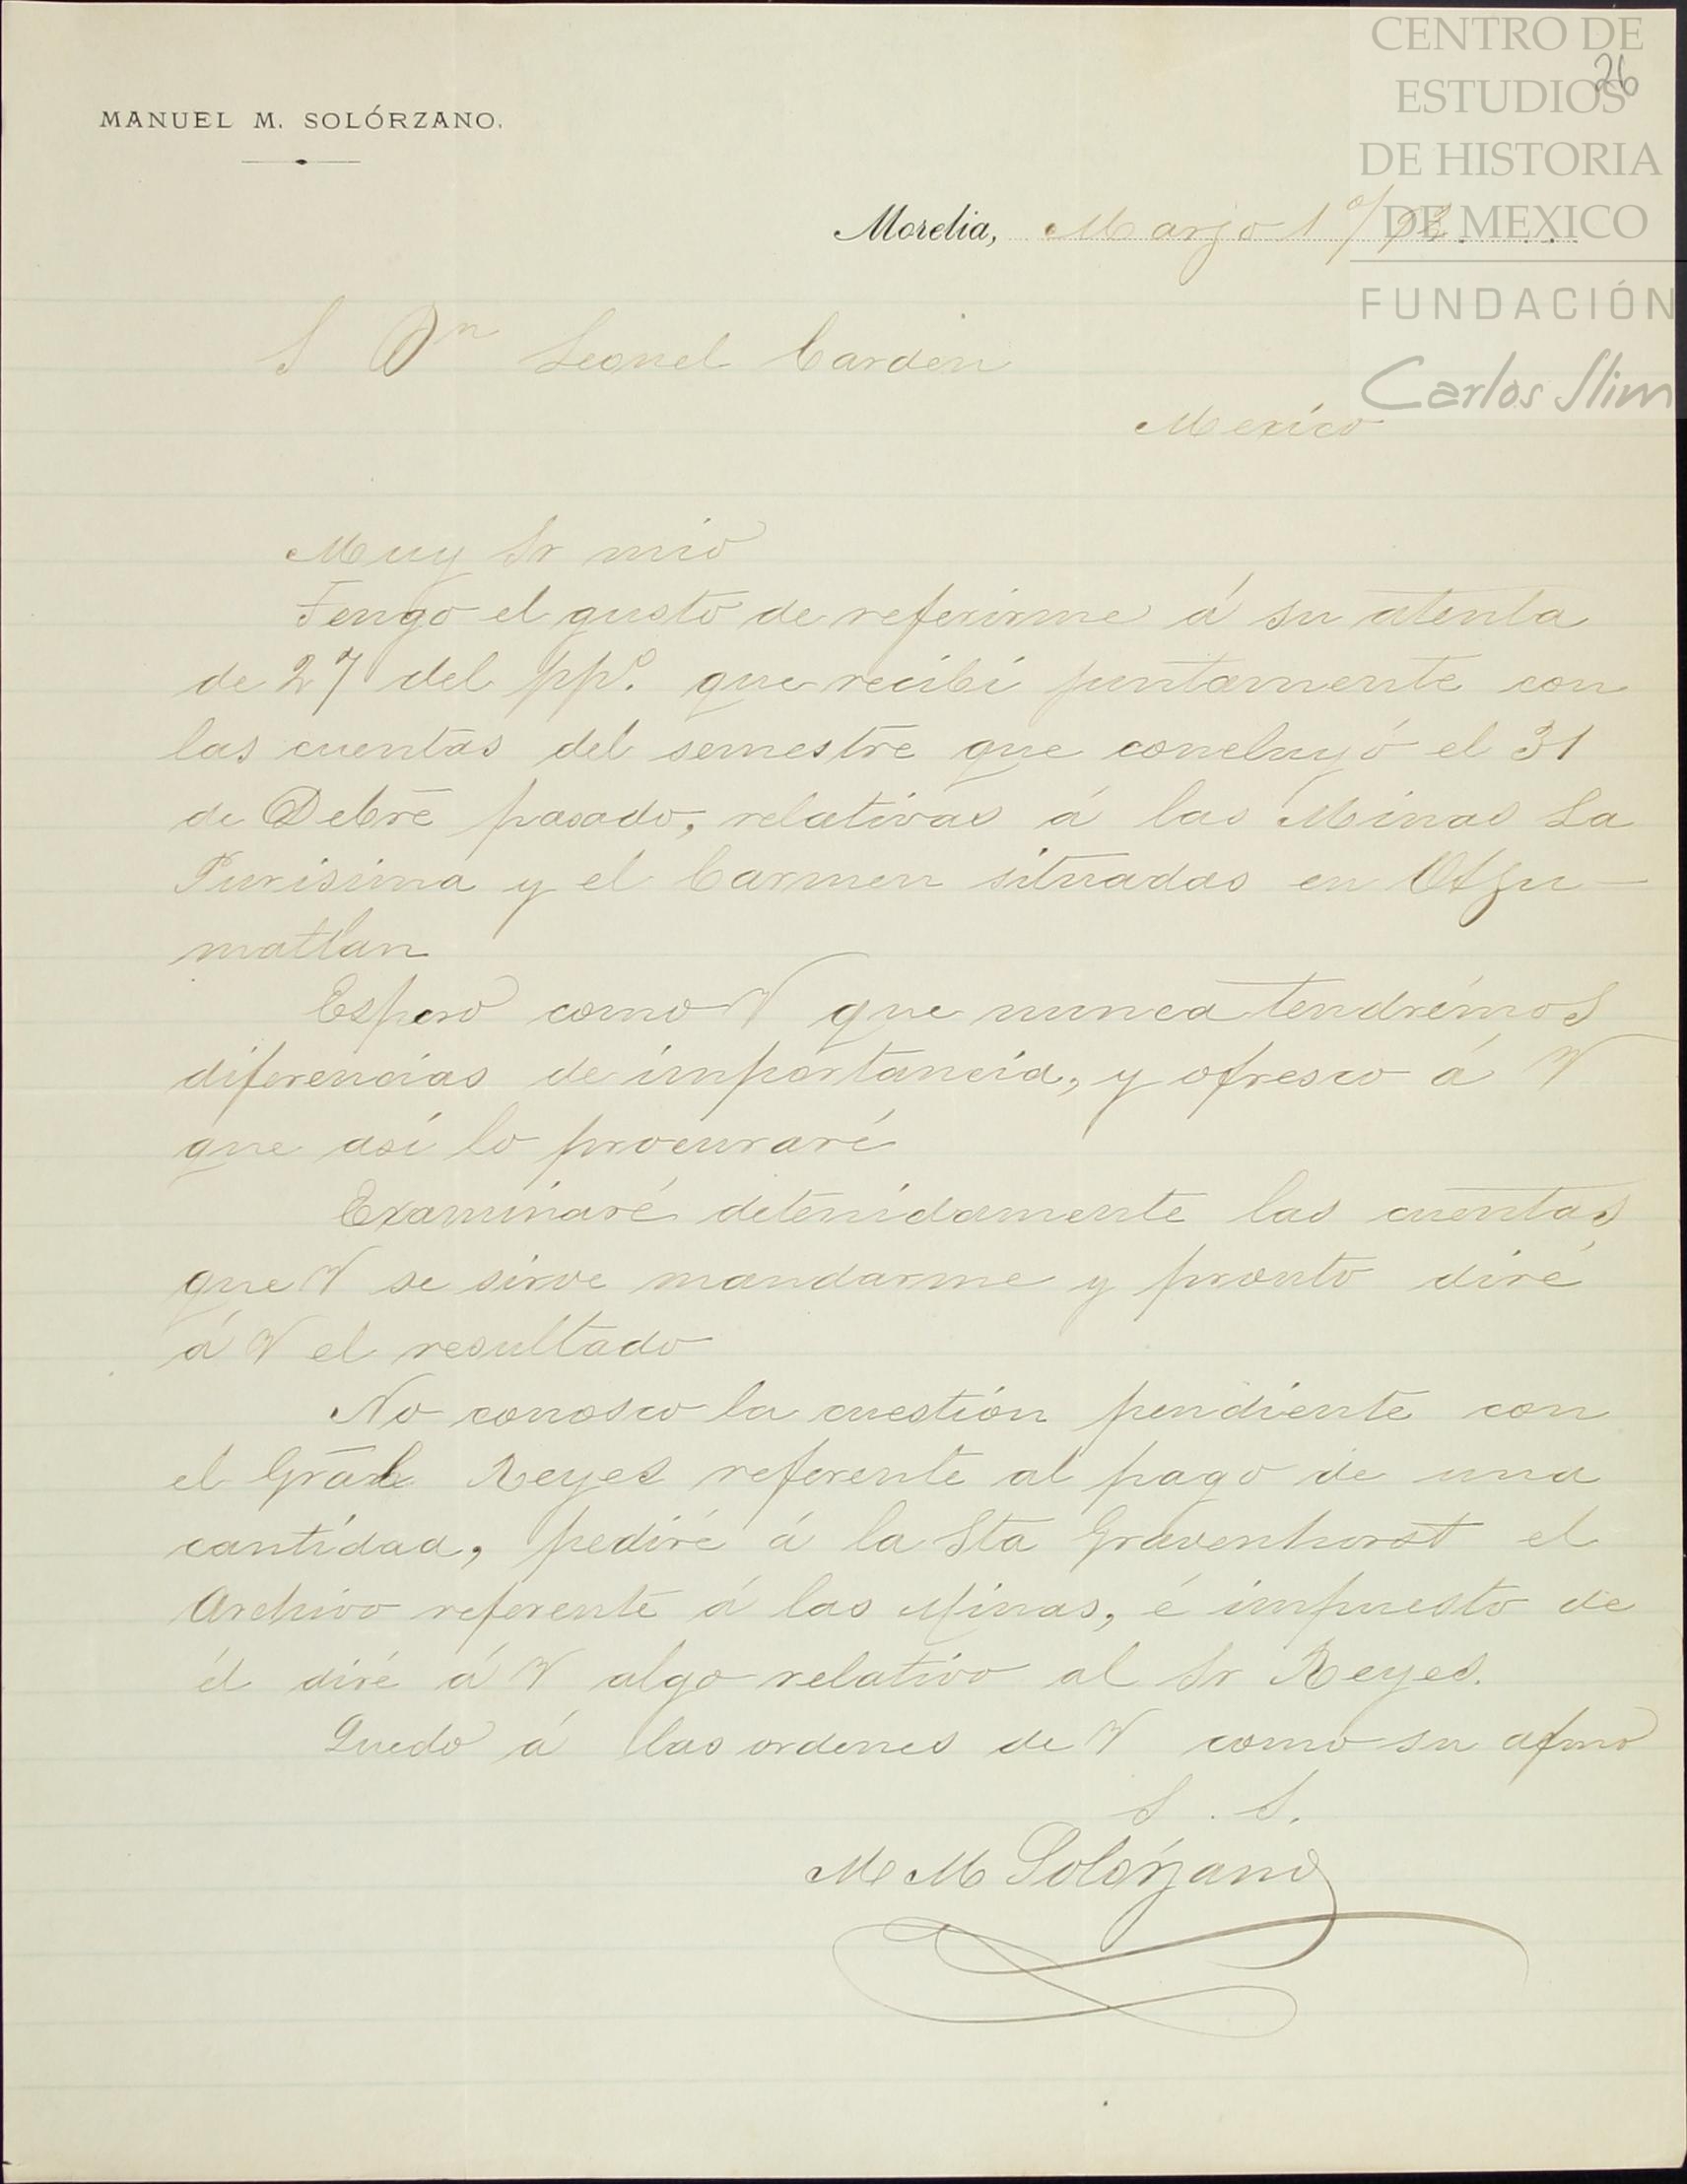 CENTRO DE
26
ESTUDIOS
DE HISTORIA
DE MEXICO
FUNDACIÓN
Carlos Slim
MANUEL M. SOLÓRZANO.
Morelia, Marzo 1º/
S Dn Leonel Carden
Mexico
Muy Sr mio
Tengo el gusto de referirme á su atenta
de 27 del ppº. que recibí juntamente con
las cuentas del semestre que concluyó el 31
de Debre pasado, relativas á las Minas La
Purisima y el Carmen situadas en Otzu-
matlan
Espero como V que nunca tendrémos
diferencias de importancia, y ofresco á V
que así lo procuraré
Examinaré detenidamente las cuentas
que V se sirve mandarme y pronto diré
á V el resultado
No conosco la cuestión pendiente con
el Gral Reyes referente al pago de una
cantidad, pediré á la Sta Gravenhorst el
Archivo referente á las Minas, é impuesto de
él diré á V algo relativo al Sr Reyes.
Quedo á las ordenes de V como su afmo
S. S.
M M Solórzano